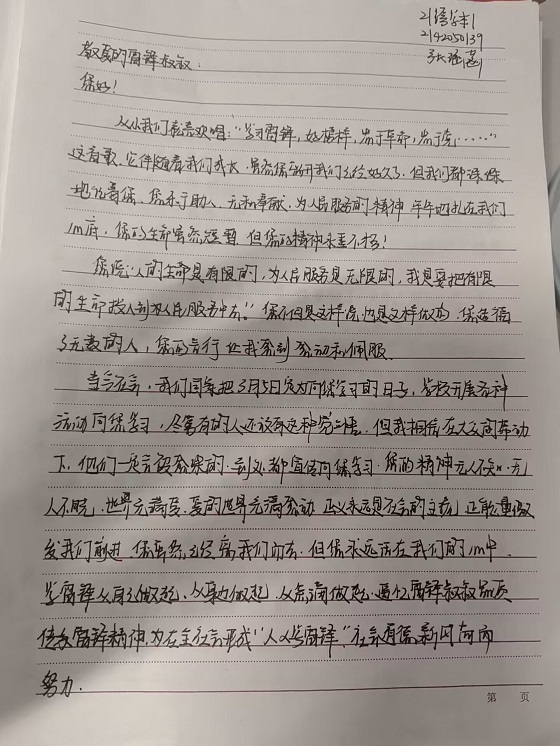 21语学本1
2142050139
张
敬爱的雷锋叔叔：
您好！
从小我们就喜欢唱：“学习雷锋，好榜样，忠于革命，忠于党……”
这首歌，它伴随着我们成长，虽然您离开我们已经好久了，但我们都深深
地记着您，您乐于助人、无私奉献、为人民服务的精神 牢牢地扎在我们
心底，您的生命虽然短暂，但您的精神永垂不朽！
您说：“人的生命是有限的，为人民服务是无限的，我是要把有限
的生命投入到为人民服务中去。”您不但是这样说，也是这样做的，您造福
了无数的人，您的言行让我感到感动和佩服。
当今社会，我们国家把3月5日定为向您学习的日子，学校开展各种
活动向您学习，尽管有的人还没有这种觉悟，但我相信在大众的带动
下，他们一定会被感染的，到处都宣传向您学习，您的精神无人不知，无
人不晓，世界充满爱，爱的世界充满感动，正义永远是社会的主流，正能量激
发我们前进，您虽然已经离我们而去，但您永远活在我们的心中。
学雷锋从自己做起、从身边做起、从点滴做起，追忆雷锋叔叔品质
传承雷锋精神，为在全社会形成“人人学雷锋”社会有德新风尚而
努力．
第 页